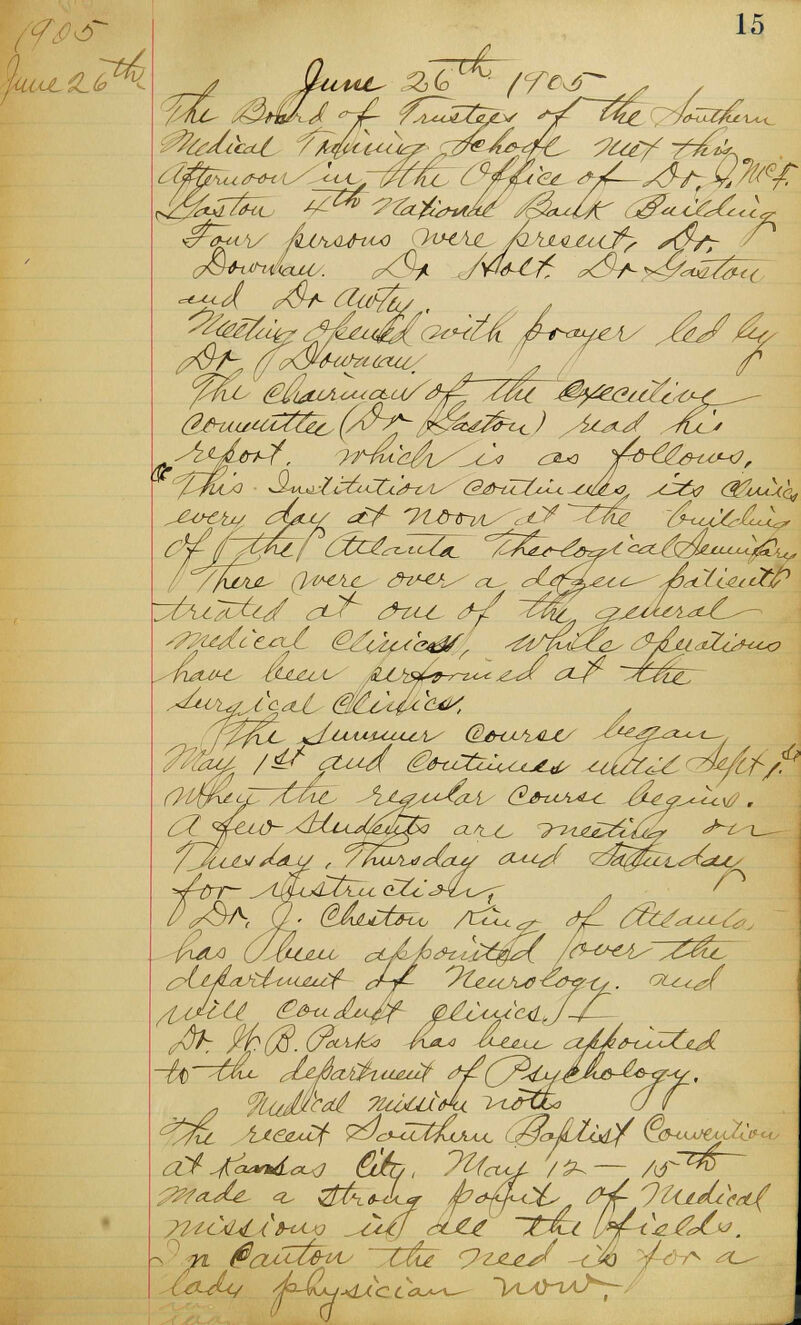 15
1905
June 26th
June 26th 1905
The Board of Trustees of the Southern
Medical Training School met this
afternoon in the Office of Dr. J. McF.
Gaston 4th National Bank Building
Four persons were present, Dr.
Downman. Dr Holt. Dr Gaston
and Dr Awtry.
Meeting opened with prayer led by
Dr Downman.
The chairman of the executive
committee (Dr Gaston) read his
report. which is as follows,
"This Institution continues its clinics
every day at noon at the building
of the Atlanta Theological Seminary
There were over a dozen patients
treated at one of the general
medical clinics, while operations
have been performed at the
surgical clinics.
The summer course began
May 1st and continues until Sept 1.st
when the regular course begins.
A few students are meeting on
Tuesday, Thursday and Saturday
for instruction.
Dr. J. Cheston King of Atlanta
has been appointed over the
department of Neurology. and
will conduct clinics.
Dr. W. B. Parks has been appointed
to the department of Psychology.
Medical mission notes
The recent Southern Baptist Convention
at Kansas City, May 12 - 15th
made a strong point of Medical
missions in all the fields.
In Canton the need is for a
lady physician now.